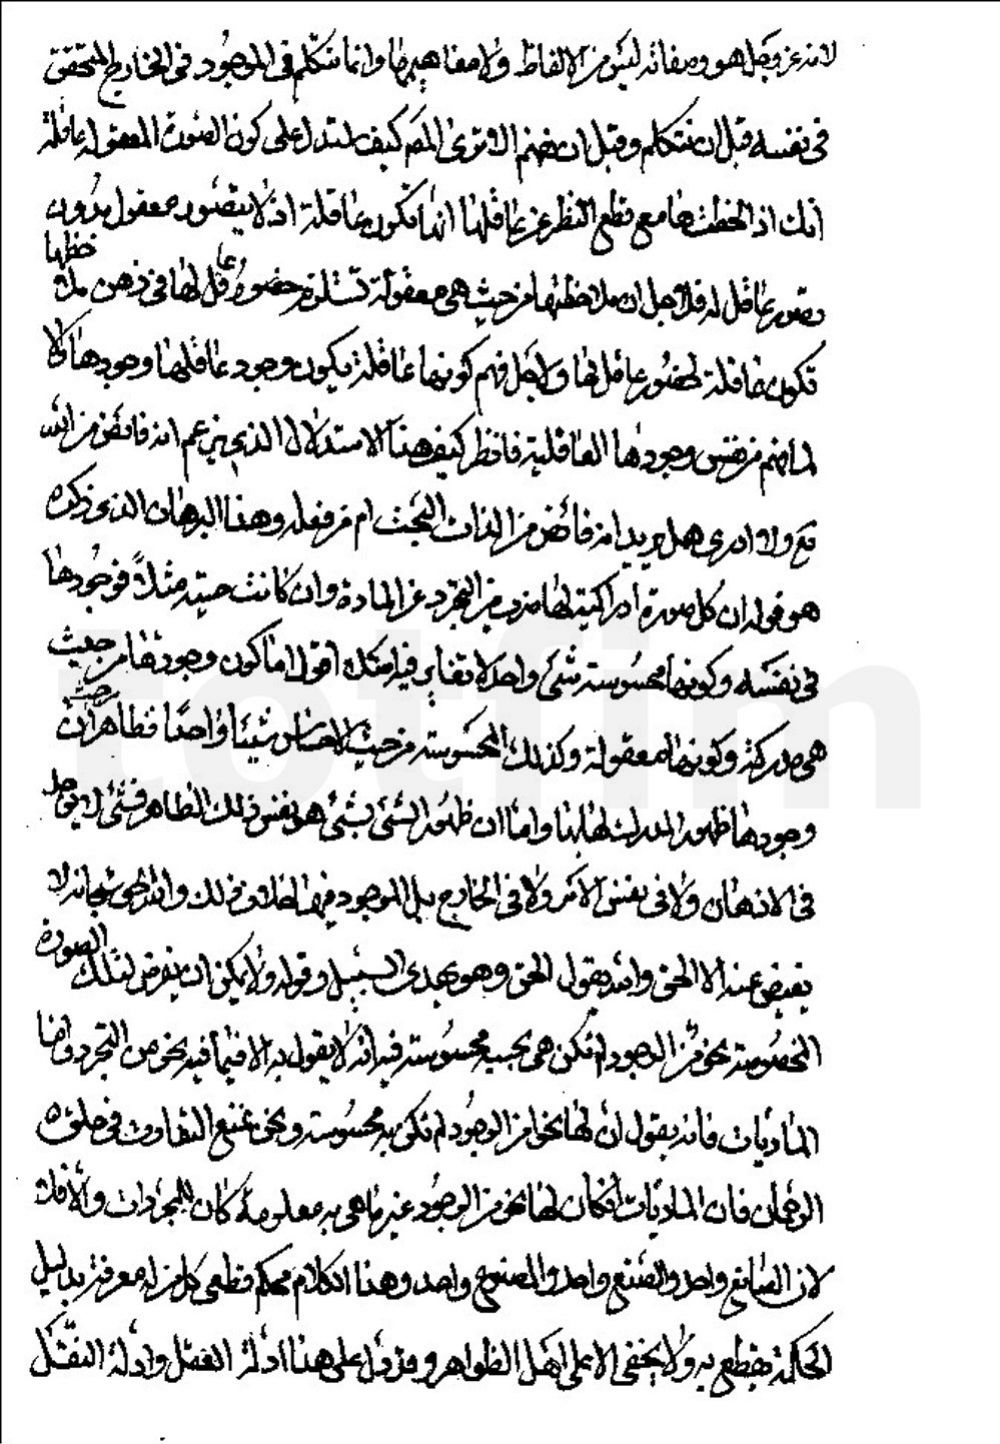 لانه عز وجل هو وصفاته ليس من الالفاظ ولا مفاهيمها وانما نتكلم فى الموجود فى الخارج المتحقق
فى نفسه قبل ان نتكلم وقبل ان نفهم الا ترى المص كيف استدل على كون الصورة المعقولة عاقلة
انك اذا لحظتها مع قطع النظر عن عاقلها انها تكون عاقلة اذ لا يتصور معقول بدون
تصور عاقل له فلاجل ان ملاحظتها من حيث هى معقولة تستلزم حضور عاقل لها فى ذهن ملاحظها
تكون عاقلة لحضور عاقل لها ولاجل فهم كونها عاقلة يكون وجود عاقلها وجودها
لما فهم من نفس وجودها العاقلية فانظر كيف هذا الاستدلال الذى يزعم انه فائض من الله
تع ولا ادرى هل يريد انه فائض من الذات البحت ام من فعله وهذا البرهان الذى ذكره
هو قوله ان كل صورة ادراكية لها ضرب من التجرد عن المادة وان كانت حسية مثلاً فوجودها
فى نفسه وكونها محسوسة شئ واحد لا تغاير فيه اقول اما كون وجودها من حيث
هى مدركة وكونها معقولة وكذلك المحسوسة من حيث الاحساس شيئا واحدا فظاهر من حيث ان
وجودها ظهور المدرك لها بها واما ان ظهور الشئ بشئ هو نفس ذلك الظاهر فشئ لا يوجد
فى الاذهان ولا فى نفس الامر ولا فى الخارج بل الموجود فيها خلاف ذلك والله سبحانه لا
يفيض عنه الا الحق والله يقول الحق وهو يهدى السبيل وقوله ولا يمكن ان يفرض لتلك الصورة
المحسوسة نحو من الوجود لم تكن هى بحسبه محسوسة فيه انه لا يقول به الا فيما فيه نحو من التجرد واما
الماديات فانه يقول ان لها نحوا من الوجود لم تكن به محسوسة ونحن نمنع التفاوت فى خلق
الرحمان فان الماديات ان كان لها نحو من الوجود غير ما هى به معلومة كان للمجردات والا فلا
لان الصانع واحد والصنع واحد والمصنوع واحد وهذا الكلام محكم قطعى كل من له معرفة بدليل
الحكمة يقطع به ولا يخفى الا على اهل الظواهر وقد دل على هذا ادلة العقل وادلة النقل
totfim